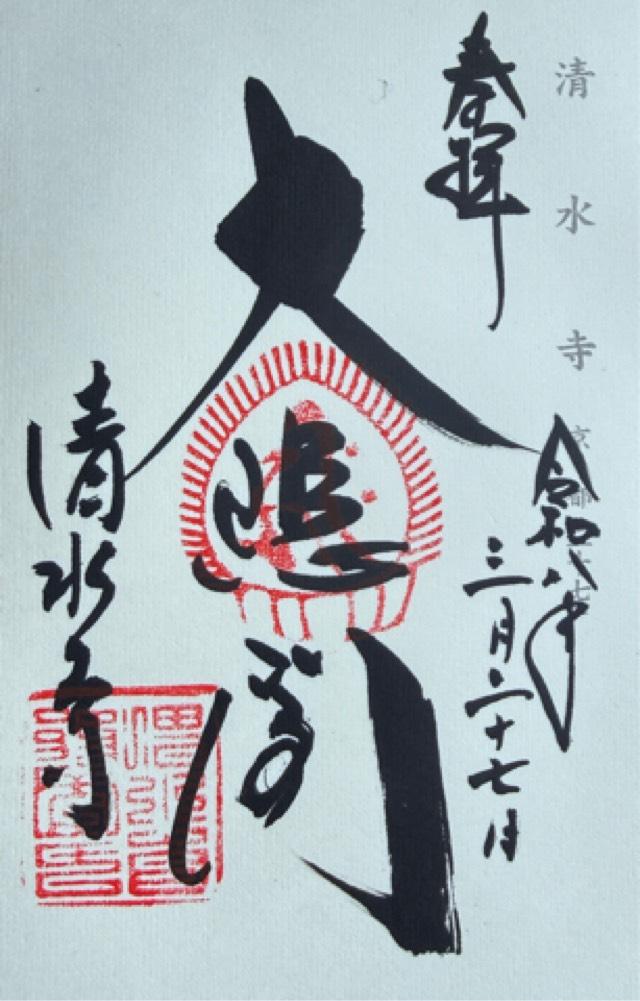 清水寺 京都
奉拝
令和八年
三月二十七日
大悲閣
清水寺